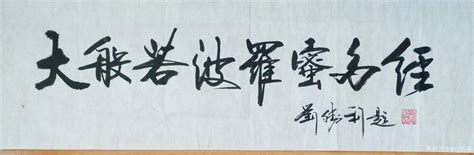 大般若波羅蜜多經
劉勝利題